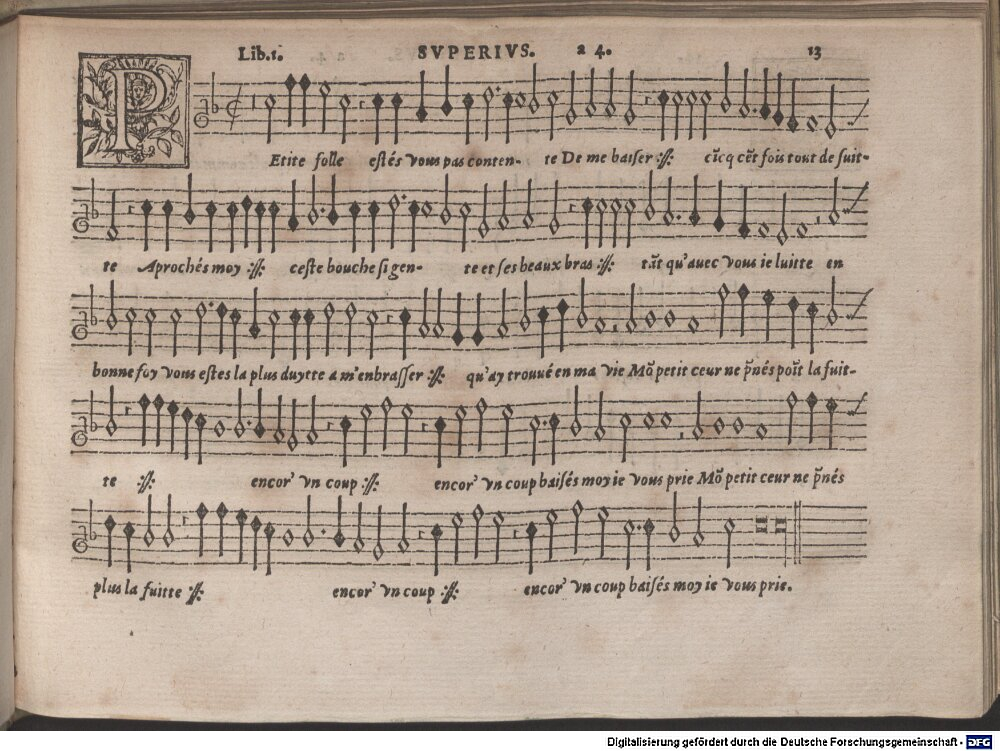 Lib.1. SVPERIVS. a 4. 13
PEtite folle estés vous pas conten- te De me baiser :||: cĩcq cẽt fois tout de suit-
te Aprochés moy :||: ceste bouche si gen- te et ses beaux bras :||: tãt qu'avec vous ie luitte en
bonne foy vous estes la plus duytte a m'enbrasser :||: qu'ay trouué en ma vie Mõ petit ceur ne p̃nés poĩt la fuit-
te :||: encor' vn coup :||: encor' vn coup baisés moy ie vous prie Mõ petit ceur ne p̃nés
plus la fuitte :||: encor' vn coup :||: encor' vn coup baisés moy ie vous prie.
Digitalisierung gefördert durch die Deutsche Forschungsgemeinschaft - DFG